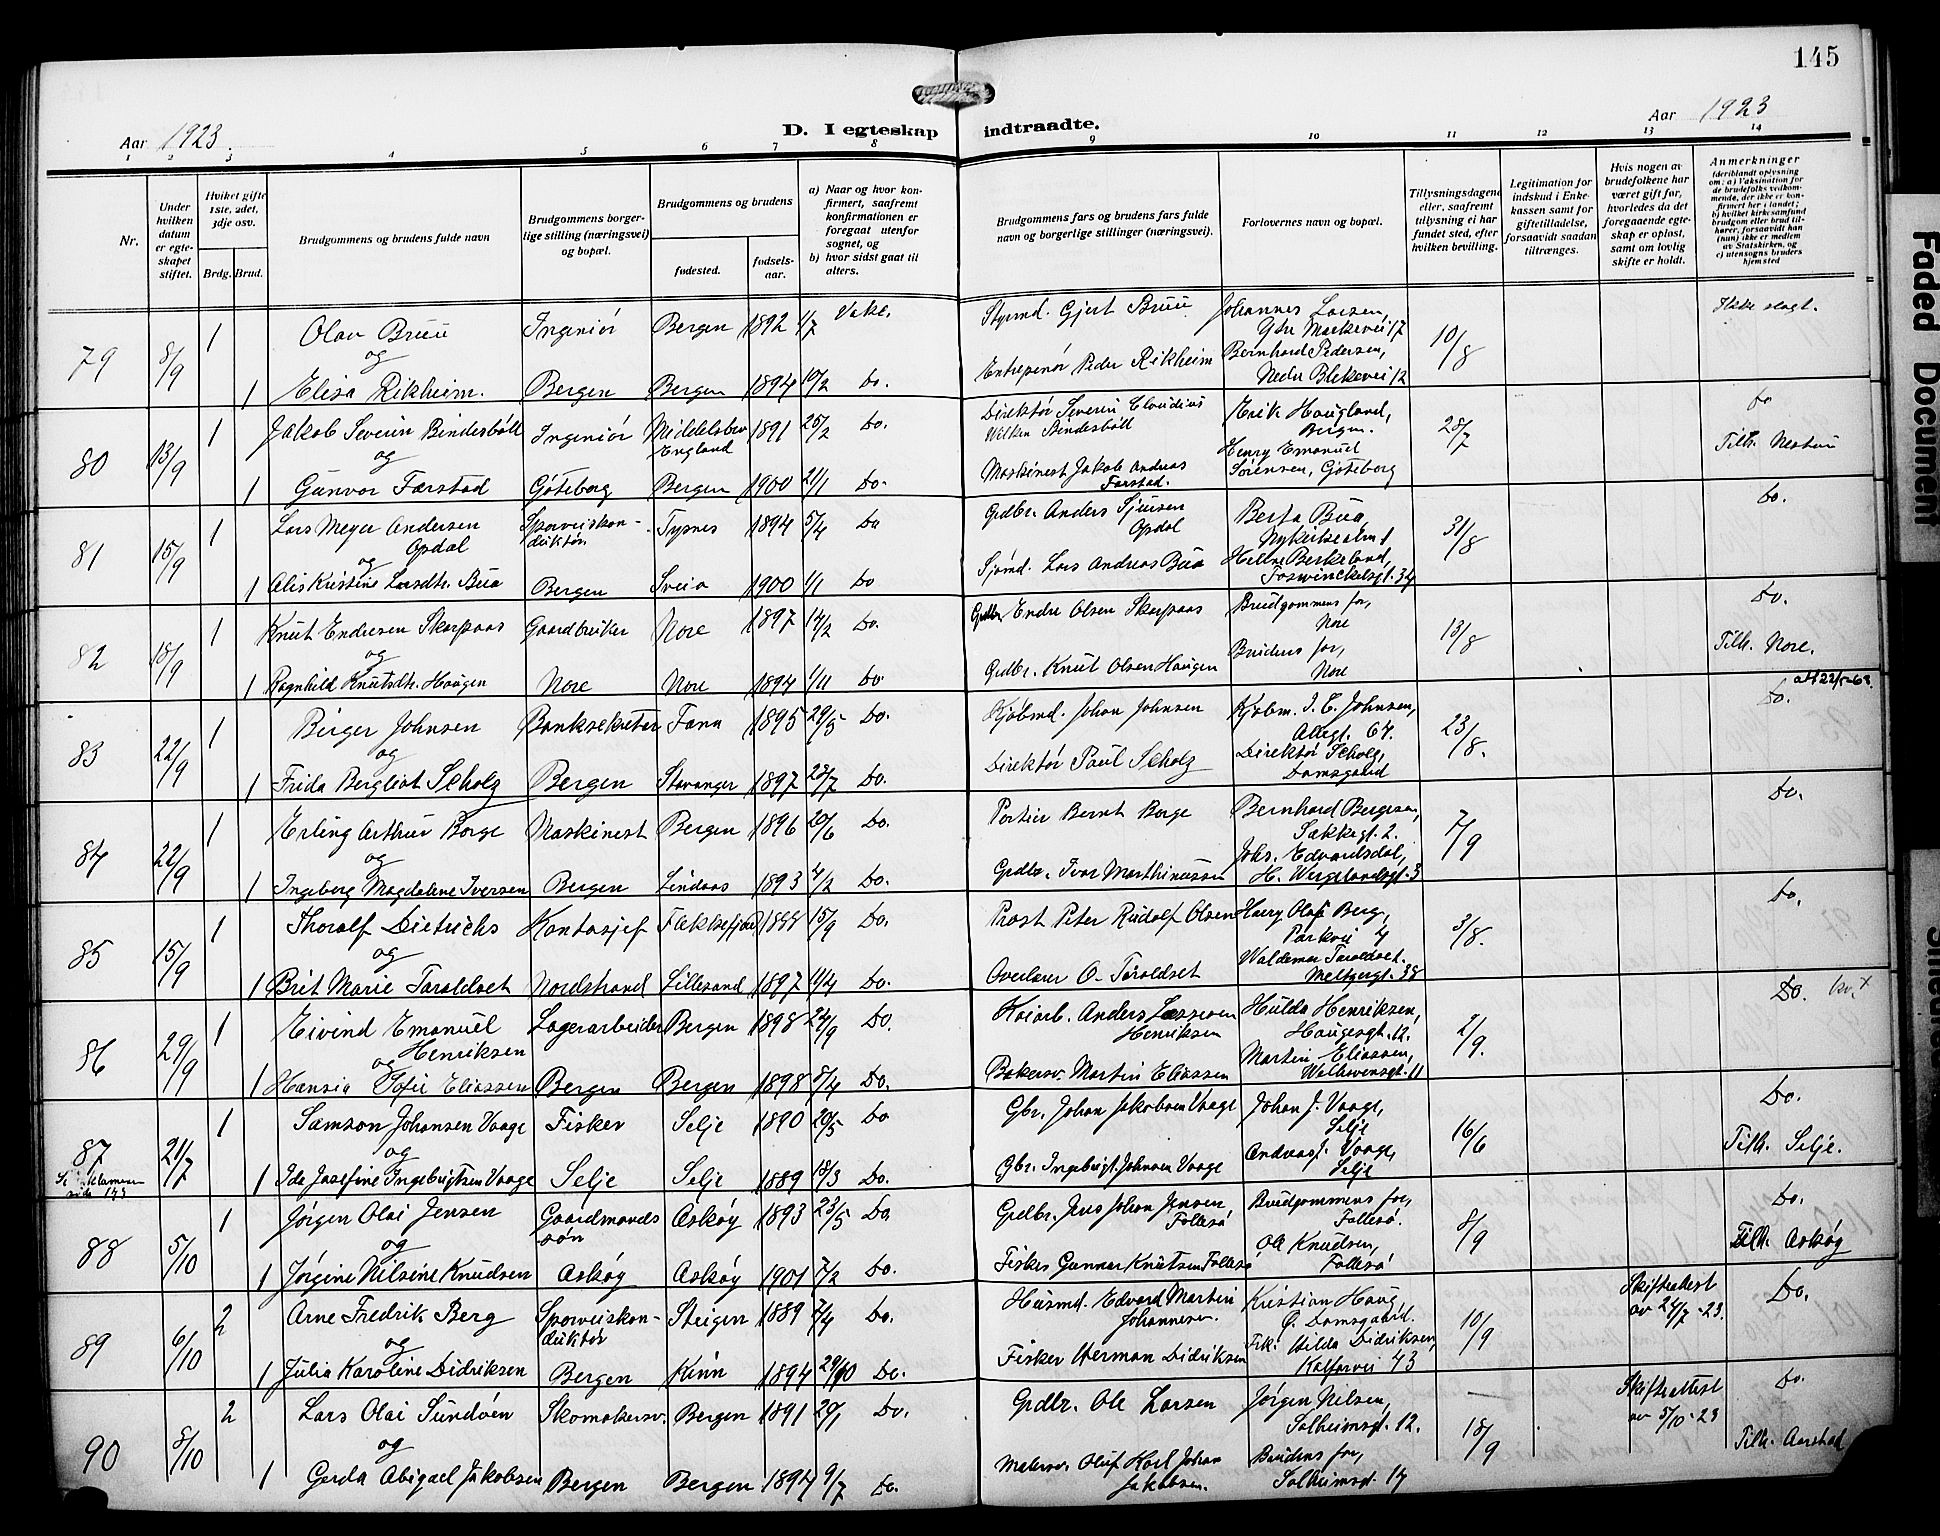 145
Aar 1923.
D. I egteskap indtraadte.
Aar 1923
1 2 3 4 5 6 7 8 9 10 11 12 13 14
Nr.
Under hvilken datum er egteskapet stiftet.
Hviket gifte 1ste, 2det, 3dje osv.
Brdg. Brud.
Brudgommens og brudens fulde navn
Brudgommens borgerlige stilling (næringsvei) og bopæl.
Brudgommens og brudens
fødested. fødselsaar.
a) Naar og hvor konfirmert, saafremt konfirmationen er foregaat utenfor sognet, og
b) hvor sidst gaat til alters.
Brudgommens fars og brudens fars fulde navn og borgerlige stillinger (næringsvei).
Forlovernes navn og bopæl.
Tillysningsdagene eller, saafremt tillysning ei har fundet sted, efter hvilken bevilling.
Legitimation for indskud i Enkekassen samt for giftetilladelse, forsaavidt saadan tiltrænges.
Hvis nogen av brudefolkene har været gift før, hvorledes da det foregaaende egteskap er opløst, samt om lovlig skifte er holdt.
Anmerkninger (deriblandt oplysning om: a) Vaksination for de brudefolks vedkommende, der ikke er konfirmert her i landet; b) hvilket kirkesamfund brudgom eller brud tilhører, forsaavidt han (hun) ikke er medlem av Statskirken, og c) utensogns bruders hjemsted
79 8/9 1 Olav Bruu Ingeniør Bergen 1892 1/7 Styrmd. Gjert Bruu Johannes Larsen, 10/8 Ikke slegt.
og Ydr Markevei 17
1 Elisa Rikheim. Bergen Bergen 1894 10/2 Do. Entrepenør Peder Rikheim Bernhard Pedersen, Nedr Blekevei 12
80 13/9 1 Jakob Severin Bindesbøll Ingeniør Middelsbro England 1891 25/2 Do. Direktør Severin Claudius Wilken Bindesbøll Erik Haugland, Bergen. 28/7 Do
og Tilh. Nestun
1 Gunvor Farstad Gøteborg Bergen 1900 21/1 Do. Maskinest Jakob Andreas Farstad. Henry Emanuel Sørensen, Gøteborg
81 15/9 1 Lars Meyer Andersen Opdal Sporveiskonduktør Tysnes 1894 5/4 Do Grdbr. Anders Sjursen Opdal Berta Bua, Nykirkealm 1 31/8 Do.
og
1 Alis Kristine Larsdtr. Bua Bergen Sveio 1900 1/1 Do Sjømd. Lars Andreas Bua Helene Berkeland, Foswinckelsgt. 34
82 18/9 1 Knut Endresen Skarpaas Gaardbruker Nore 1897 14/2 Do. Grdbr. Endre Olsen Skarpaas Brudgommens far, Nore 13/8 Do.
og Tilh. Nore.
1 Ragnhild Knutsdtr. Haugen Nore Nore 1894 1/11 Do. Grdbr. Knut Olsen Haugen Brudens far, Nore
83 22/9 1 Birger Johnsen Banksekretær Fana 1895 29/5 Do. Kjøbmd. Johan Johnsen Kjøbm. I. C. Johnsen, Allegt. 64. 23/8. Do.
og
1 Frida Bergliot Scholz Bergen Stavanger 1897 28/7 Do. Direktør Paul Scholz Direktør Scholz, Damsgaard
84 22/9 1 Erling Arthur Borge Maskinest Bergen 1896 20/6 Do. Portier Bernt Borge Bernhard Bergesen, Sækkegt. 2. 7/9 Do.
og
1 Ingeborg Magdalene Iversen Bergen Lindaas 1893 4/2 Do. Grdbr. Ivar Marthinussen Johs. Edvardsdal, H. Wergelandsgt. 3
85 15/9 1 Thoralf Dietrichs Kontorsjef Flekkefjord 1888 15/9 Do. Prost Peter Rudolf Olsen Harry Olaf Berg, Parkvei 4 3/8. Do.
og
1 Brit Marie Taraldset Nordstrand Lillesand 1897 11/4 Do. Overlærer O. Taraldset Waldemar Taraldset. Meltzersgt. 38
86 29/9 1 Eivind Emanuel Henriksen Lagerarbeider Bergen 1898 24/9 Do. Kaiarb. Anders Lassesen Henriksen Hulda Henriksen, Haugesgt. 12. 2/9. Do.
og
1 Hansia Sofie Eliassen Bergen Bergen 1898 8/4 Do. Bakersv. Martin Eliassen Martin Eliassen, Welhavensgt. 11
87 21/7 1 Samson Johansen Vaage Fisker Selje 1890 20/5 Do Gbr. Johan Jakobsen Vaage Johan J. Vaage, Selje 16/6 Do.
og Tilh. Selje.
1 Ida Josefine Ingebrigtsen Vaage Selje Selje 1889 18/3 Do. Gbr. Ingebrigt Johnsen Vaage Andreas J. Vaage, Selje
88 5/10 1 Jørgen Olai Jensen Gaardmandssøn Askøy 1893 23/5 Do. Grdbr. Jens Johan Jensen, Follesø Brudgommens far, Follesø. 8/9 Do.
og Tilh. Askøy
1 Jørgine Nilsine Knudsen Askøy Askøy 1901 7/2 Do. Fisker Gunnar Knutsen Follesø Ole Knudsen, Follesø
89 6/10 2 Arne Fredrik Berg Sporveiskonduktør Steigen 1889 7/4 Do. Husmd. Edvard Martin Johannesen. Kristian Haug, Damsgaard. 10/9 Skifteattest av 24/7-23. Do.
og
1 Julia Karoline Didriksen Bergen Kinn 1894 29/10 Do. Fisker Herman Didriksen Frk. Hilda Didriksen, Kalfarvei 43
90 8/10 2 Lars Olai Sundøen Skomakersv. Bergen 1891 20/1 Do. Grdbr. Ole Larsen Jørgen Nilsen, Solheimsgt. 12. 18/9 Skifteattest av 5/10-23 Do.
og Tilh. Aarstad
1 Gerda Abigael Jakobsen Bergen Bergen 1894 9/7 Do. Malersv. Oluf Karl Johan Jakobsen. Brudens far, Solheimsgt. 14
Faded Document